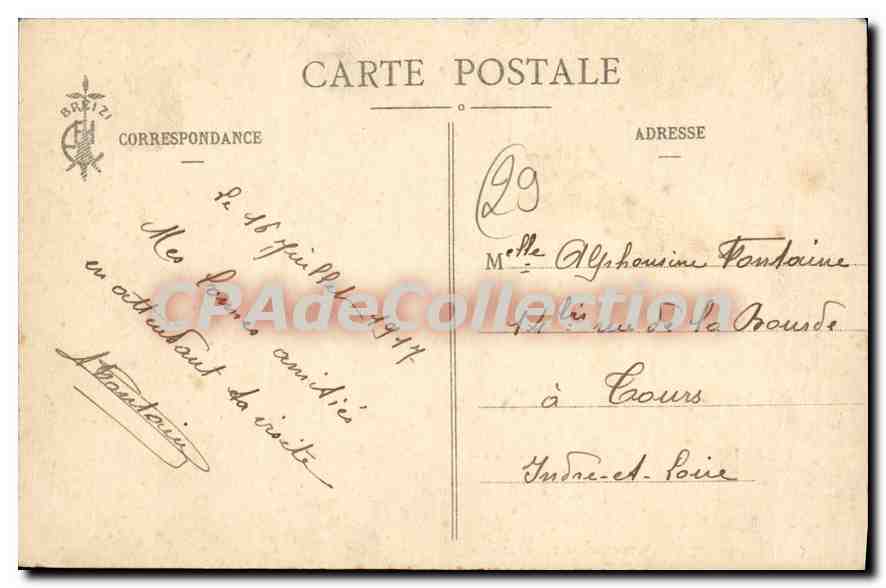 CARTE POSTALE
BREIZI
CORRESPONDANCE
ADRESSE
29
Le 16 Juillet 1917
Mes bonnes amitiés
en attendant ta visite
Fontaine
Melle Alphonsine Fontaine
bis rue de la Bourde
à Tours
Indre-et-Loire
CPAdeCollection